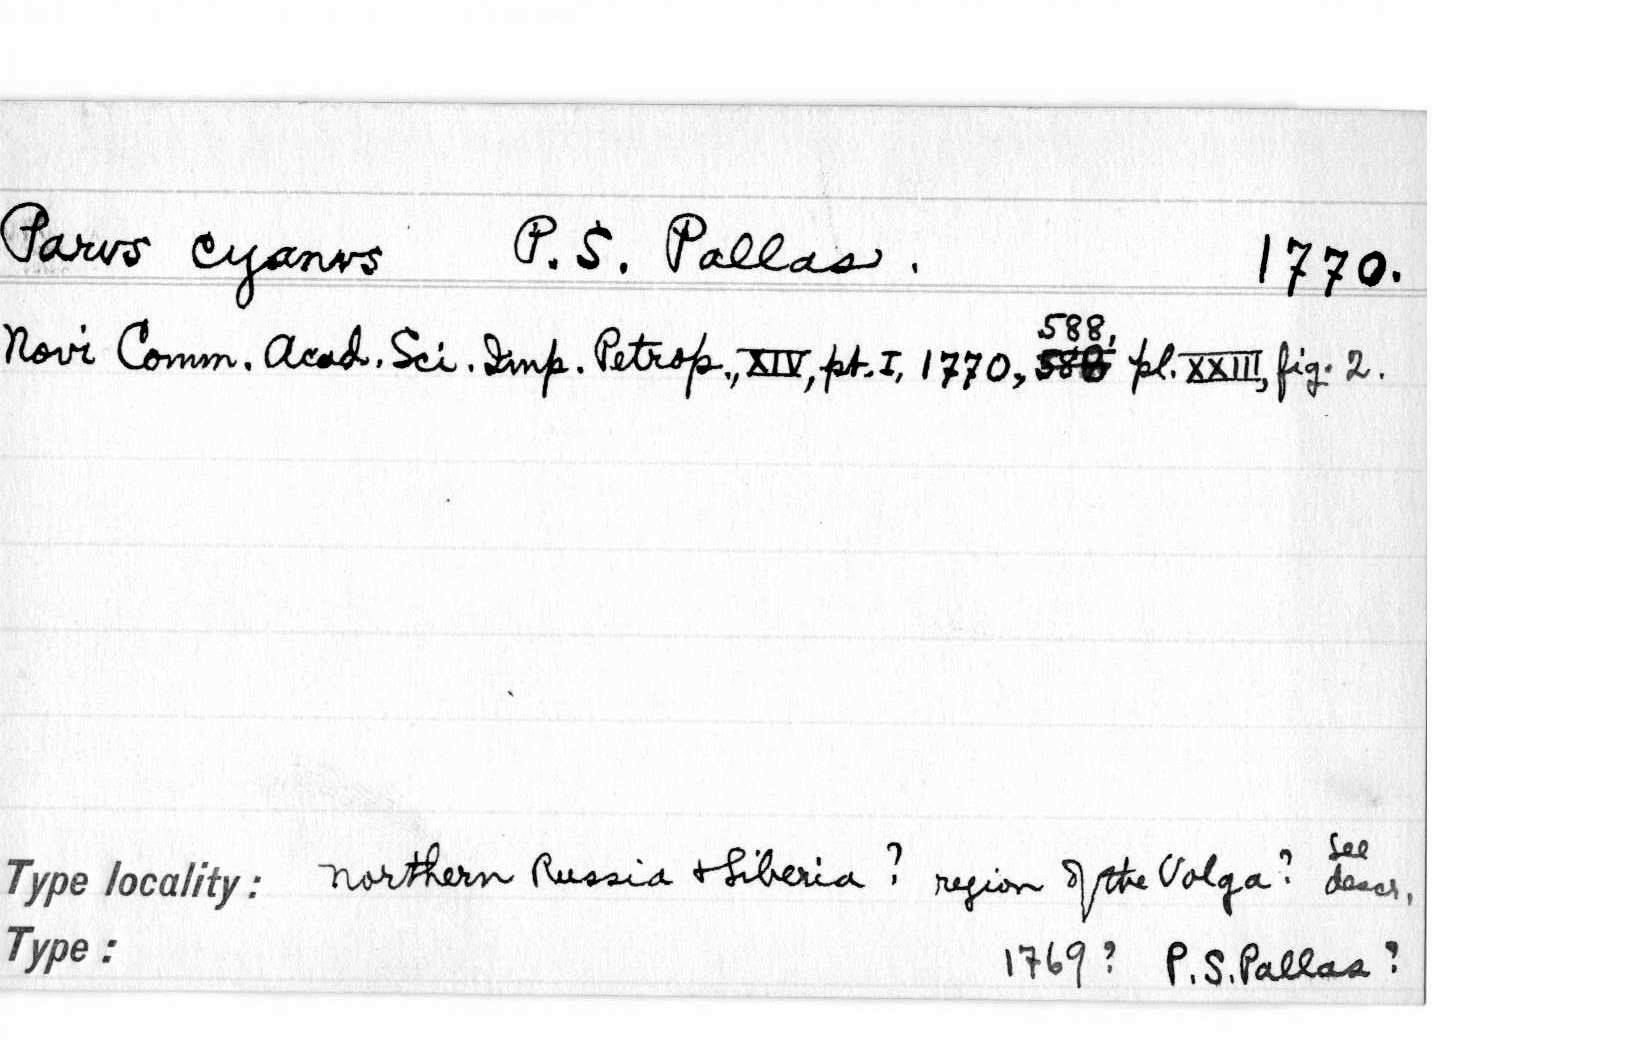 Parus cyanus P. S. Pallas. 1770.
Novi Comm. Acad. Sci. Imp. Petrop., XIV, pt. I, 1770, 588, pl. XXIII, fig. 2.
Type locality: northern Russia + Siberia? region of the Volga? see descr.
Type: 1769? P. S. Pallas?